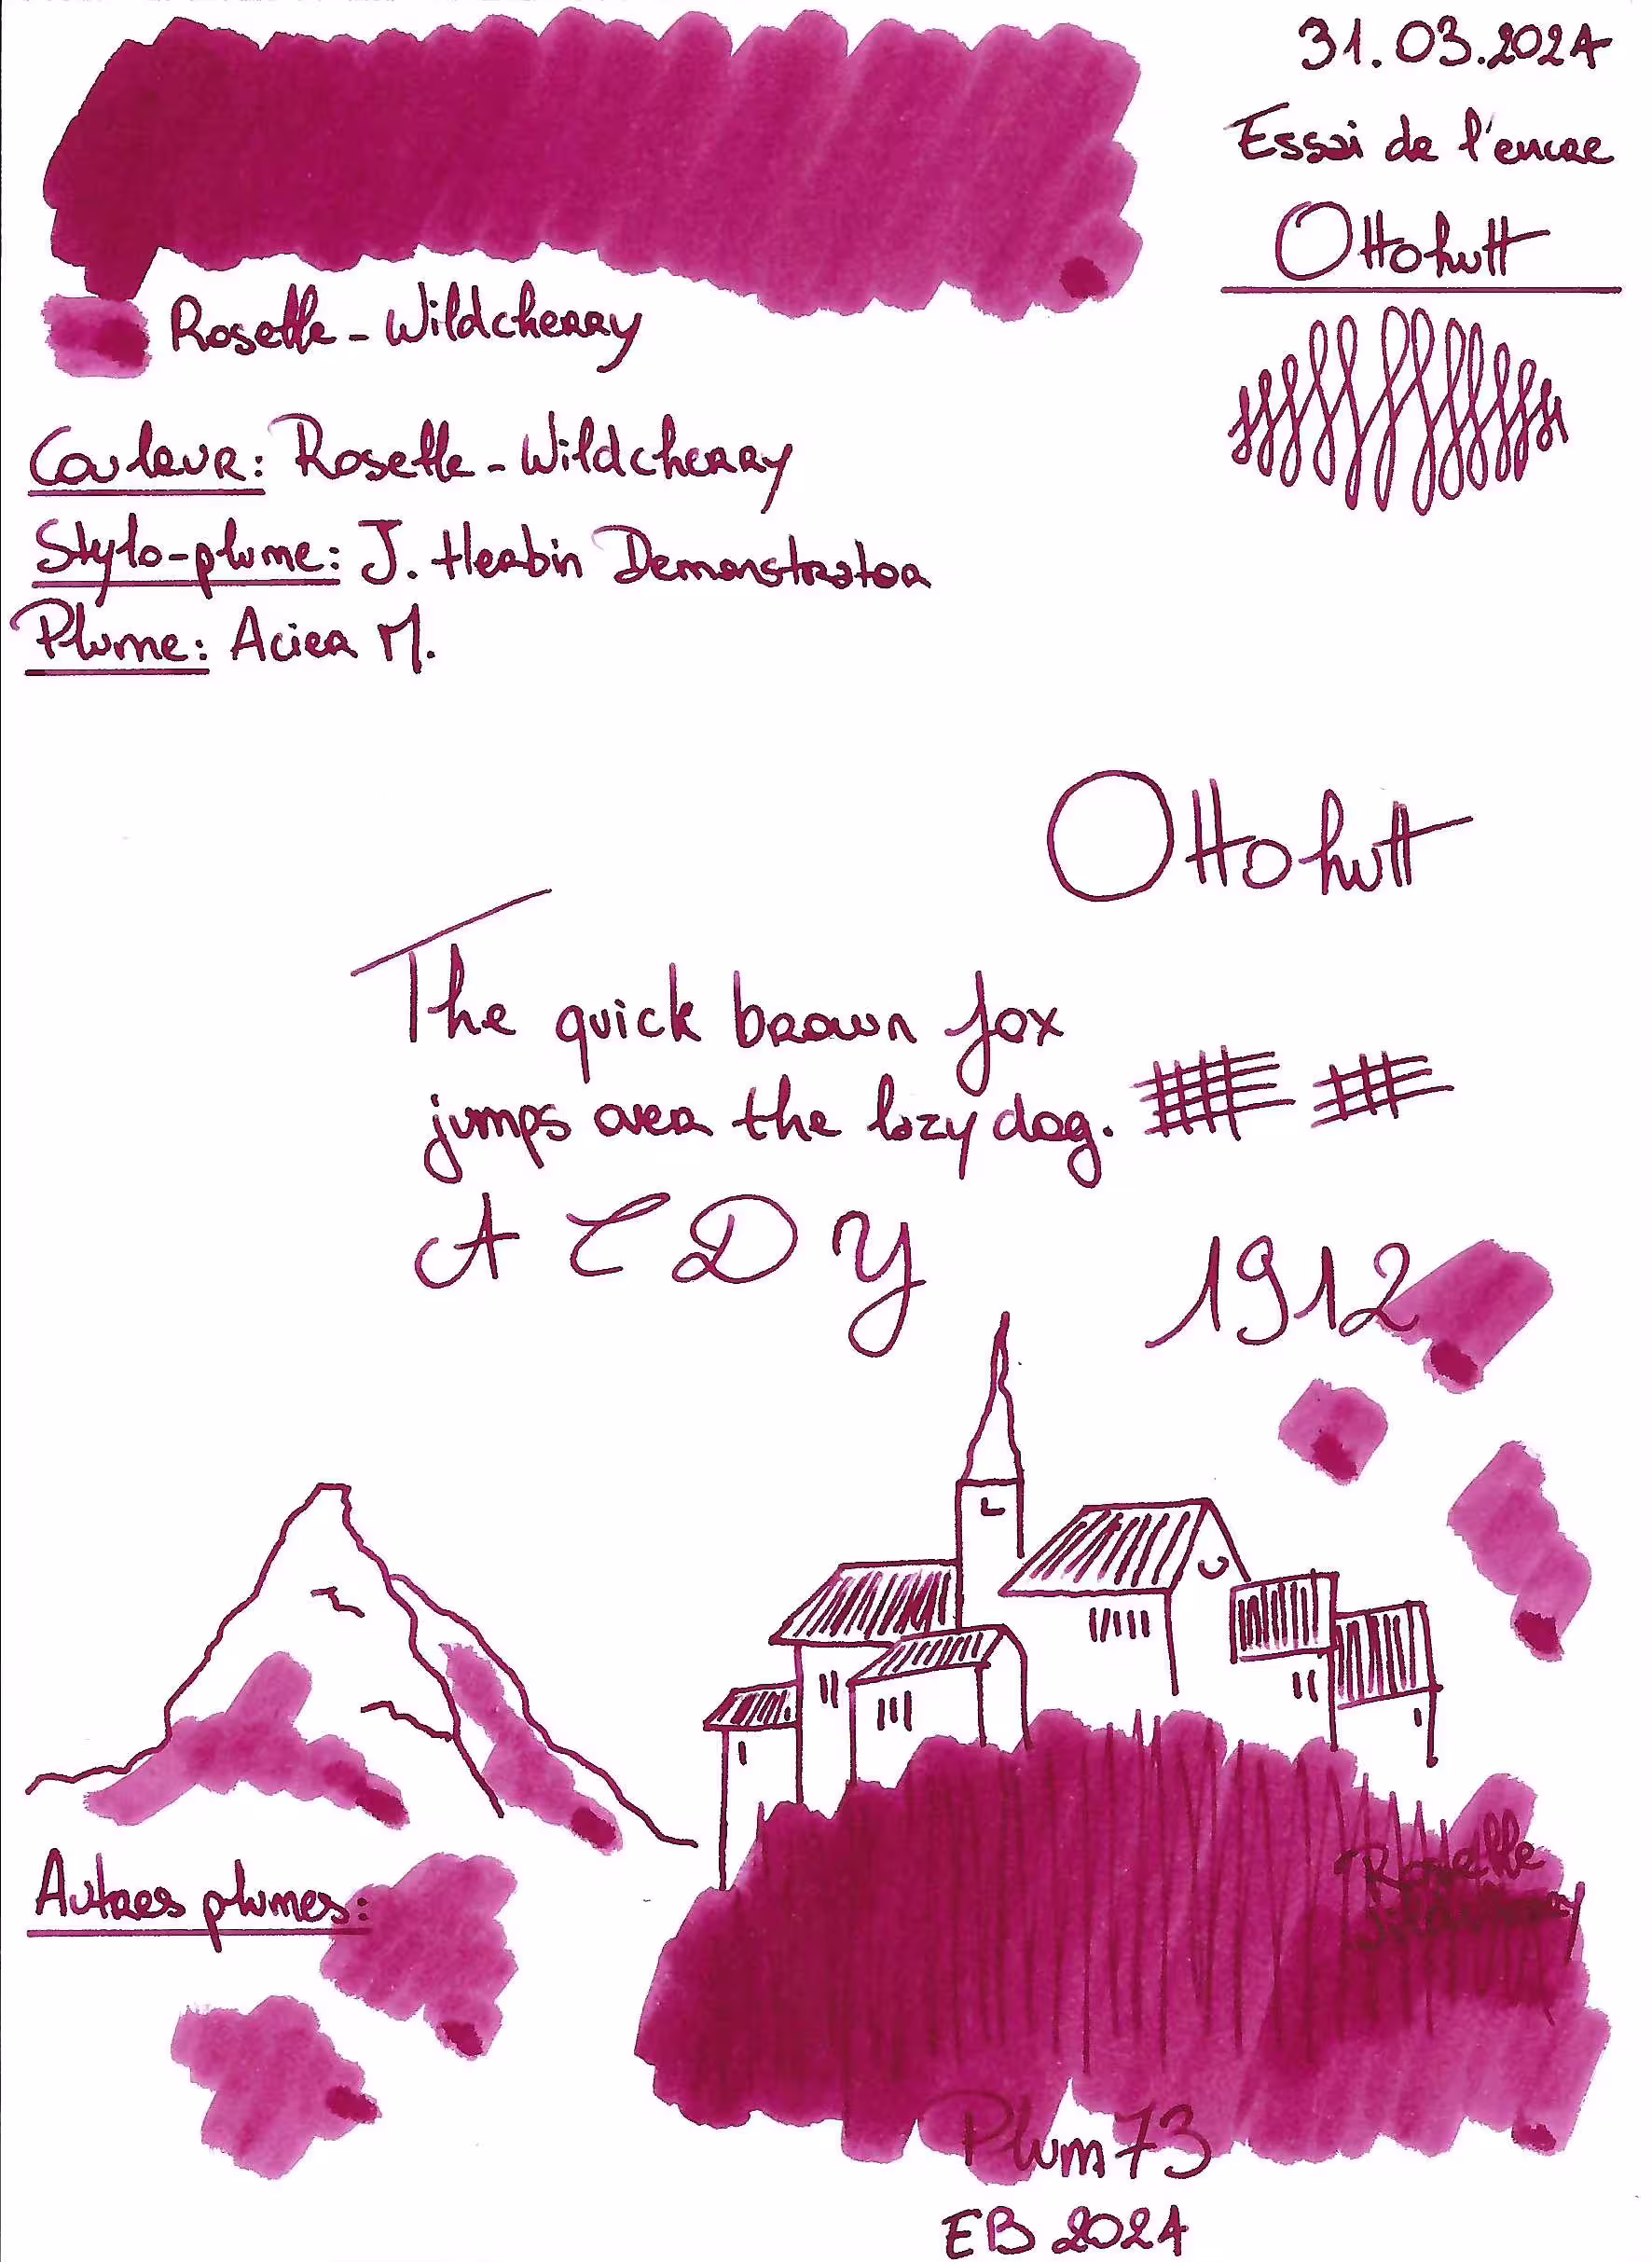 31.03.2024
Essai de l'encre
Ottohutt
Roselle - Wildcherry
Couleur: Roselle - Wildcherry
Stylo-plume: J. Herbin Demonstrator
Plume: Acier M.
Ottohutt
The quick brown fox
jumps over the lazy dog.
A C D Y
1912
Autres plumes:
Roselle
Wildcherry
Plum73
EB 2024